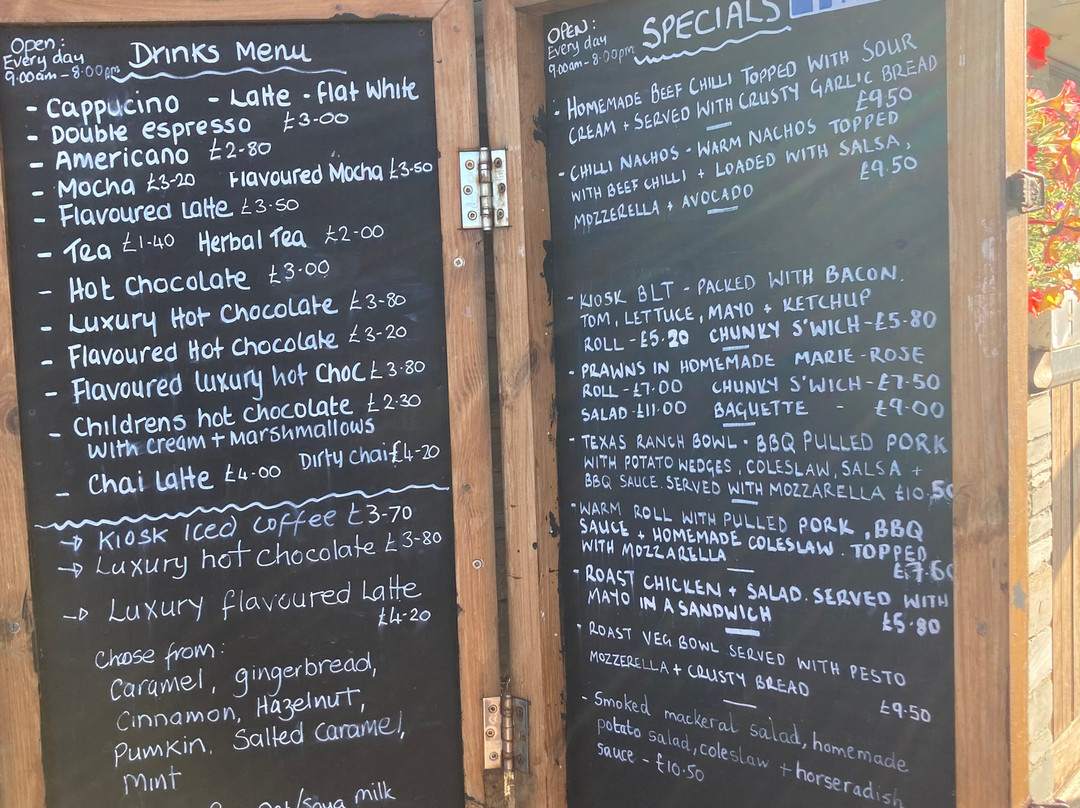 Open:
Every day
9.00am - 8:00pm
Drinks Menu
- Cappucino - Latte - Flat White
- Double espresso £3-00
- Americano £2-80
- Mocha £3-20 Flavoured Mocha £3-50
- Flavoured Latte £3-50
- Tea £1-40 Herbal Tea £2-00
- Hot Chocolate £3-00
- Luxury Hot Chocolate £3-80
- Flavoured Hot Chocolate £3-20
- Flavoured luxury hot Choc £3-80
- Childrens hot Chocolate £2-30
with cream + Marshmallows
- Chai Latte £4-00 Dirty chai £4-20
→ Kiosk Iced Coffee £3-70
→ Luxury hot Chocolate £3-80
→ Luxury flavoured Latte
£4-20
Choose from:
Caramel, gingerbread,
Cinnamon, Hazelnut,
Pumkin, Salted Caramel,
Mint
Oat/Soya milk
OPEN:
Every day
9.00am - 8:00pm
SPECIALS
- HOMEMADE BEEF CHILLI TOPPED WITH SOUR
CREAM + SERVED WITH CRUSTY GARLIC BREAD
£9.50
- CHILLI NACHOS - WARM NACHOS TOPPED
WITH BEEF CHILLI + LOADED WITH SALSA,
MOZZERELLA + AVOCADO £9.50
- KIOSK BLT - PACKED WITH BACON.
TOM, LETTUCE, MAYO + KETCHUP
ROLL - £5.20 CHUNKY S'WICH - £5-80
- PRAWNS IN HOMEMADE MARIE-ROSE
ROLL - £7.00 CHUNKY S'WICH - £7-50
SALAD - £11.00 BAGUETTE - £9-00
- TEXAS RANCH BOWL - BBQ PULLED PORK
WITH POTATO WEDGES, COLESLAW, SALSA +
BBQ SAUCE. SERVED WITH MOZZARELLA £10.50
- WARM ROLL WITH PULLED PORK, BBQ
SAUCE + HOMEMADE COLESLAW. TOPPED
WITH MOZZARELLA £7.60
- ROAST CHICKEN + SALAD. SERVED WITH
MAYO IN A SANDWICH £5.80
- ROAST VEG BOWL SERVED WITH PESTO
MOZZERELLA + CRUSTY BREAD
£9.50
- Smoked mackeral salad, homemade
potato salad, coleslaw + horseradish
sauce - £10.50